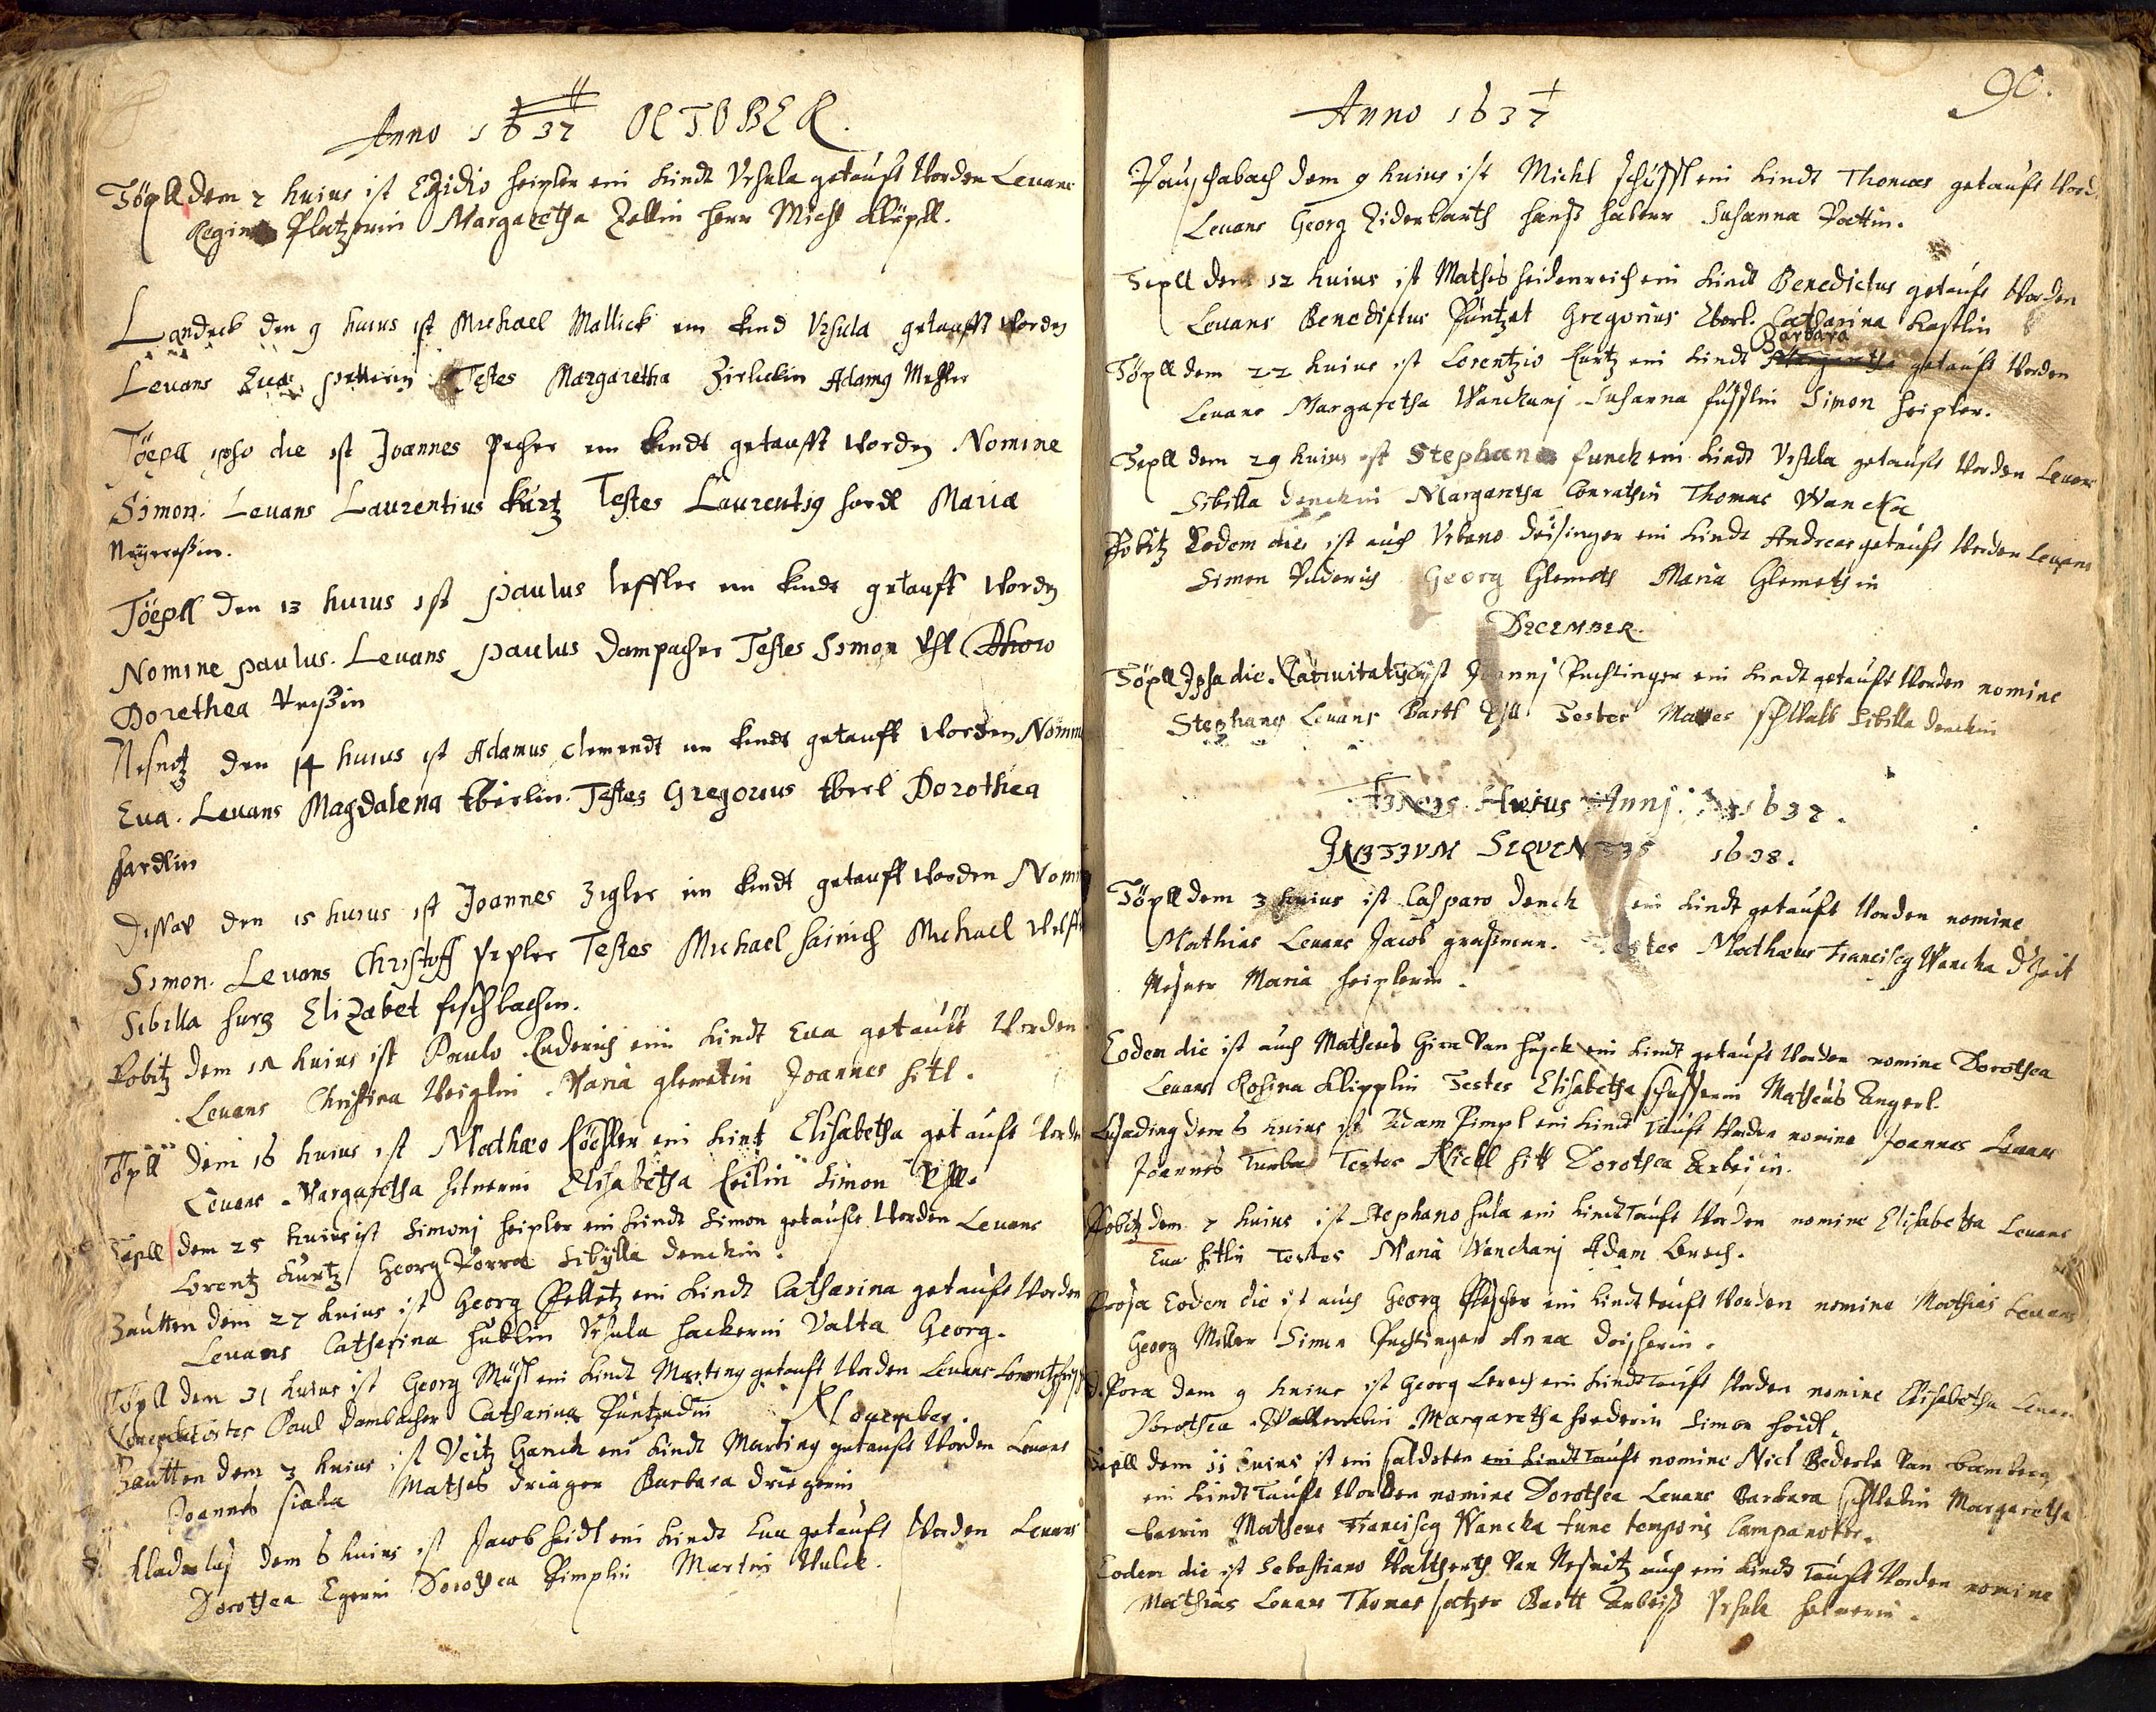 Anno 1637 OCTOBER.
Töpll dem 2 huius ist Egidio heipler ein kindt Vrsula getauft Worden Leuans
Regina Platzerin Margaretha Zellin herr Michl Klöpll.
Landeck den 9 huius ist Michael Mallick ein kind Vrsula getaufft worden
Leuans Eua petterin Testes Margaretha Zirlickin Adamus Mesler
Töepll ipso die ist Joannes pecher ein kindt getaufft worden Nomine
Simon. Leuans Laurentius kürtz Testes Laurentius hordl Maria
Töepll den 13 huius ist paulus leffler ein kindt getaufft worden
Nomine paulus. Leuans paulus Dampacher Testes Simon Vhl
Dorethea
Nesnitz den 14 huius ist Adamus Clemendt ein kindt getaufft worden Nomine
Eua. Leuans Magdalena Eberlin. Testes Gregorius Eberl Dorothea
hardlin
den 15 huius ist Joannes Zigler ein kindt getaufft worden Nomine
Simon. Leuans Christoff pepler Testes Michael hainich Michael
Sibilla Elizabet fischbachin.
Pobitz dem huius ist Paulo Ruderich ein kindt Eua getaufft Worden
Leuans Christina Weiglin Maria glemetin Joannes hitl.
Töpll dem 16 huius ist Mathæo Röesler ein kint Elisabetha getaufft Worden
Leuans Margaretha hitnerin Elisabetha Simon Vhll.
Tepll dem 25 huius ist Simonj heipler ein kindt Simon getaufft Worden Leuans
Lorentz kurtz Georg Porra Sibylla denckin.
Zautten dem 27 huius ist Georg Pelletz ein kindt Catharina getauft Worden
Leuans Catherina hüblin Vrsula hackerin Valta Georg.
Töpll dem 31 huius ist Georg Müsl ein kindt Martinus getaufft Worden Leuans
testes Paul Dambacher Catharina Püntzndin Nouember.
Zautten dem 3 huius ist Veitz Ganck ein kindt Martinus getaufft Worden Leuans
Joannes siaka Mathes driager Barbara driegerin
dem 6 huius ist Jacob heidl ein kindt Eua getauft Worden Leuans
Dorothea Egerin Dorothea Pimplin Martin Wulck.
90.
Anno 1637
Pauschabach dem 9 huius ist Michl schüssl ein kindt Thomas getauft Word
Leuans Georg Ziderbarth hanß haberr Susanna Pottin.
Tepll dem 12 huius ist Mathes heidenreich ein kindt Benedictus getauft Worden
Leuans Benedictus Püntzet Gregorius Eberl. Catharina Kastlin
Barbara
Töpll dem 22 huius ist Lorentzio Kurtz ein kindt Margaretha getauft Worden
Leuans Margaretha Wanckanj Susanna füsslin Simon heipler.
Tepll dem 29 huius ist Stephano funck ein kindt Vrsula getaufft Worden Leuans
Sibilla denckin Margaretha Conrathin Thomas Wancka
Pobitz Eodem die ist auch Vrbano deisinger ein kindt Andreas getaufft Worden Leuans
Simon Ruderich Georg Glemeth Maria Glemethin
DECEMBER.
Töpll Ipsa die Natiuitatis ist Joannj Puchtinger ein kindt getauft Worden nomine
Stephanus Leuans Bartl Vhll Testes Mattes schwab Sibilla denckin
FINIS Huius Annj 1637.
INITIVM SEQVENTIS 1638.
Töpll dem 3 huius ist Casparo denck ein kindt getauft Worden nomine
Mathias Leuans Jacob graßman. Testes Mathæus Franciscus Wancka
Mesner Maria heiplerin.
Eodem die ist auch Matheus Gira Van ein kindt getauft Worden nomine Dorothea
Leuans Rosina Klipplin Testes Elisabetha schusterin Matheus Angerl.
Lusading dem 6 huius ist Adam Pimpl ein kindt Tauft Worden nomine Joannes Leuans
Joannes Turba Testes Nickl hitl Dorothea
Pobitz dem 7 huius ist Stephano hüla ein kindt Tauft Worden nomine Elisabetha Leuans
Eua hitlin Testes Maria Wanckanj Adam Lerch.
Prosa Eodem die ist auch Georg fleischer ein kindt tauft Worden nomine Mathias Leuans
Georg Miller Simon Puchtinger Anna
Pora dem 9 huius ist Georg Lerch ein kindt Tauft Worden nomine Elisabetha Leuans
Dorothea Margaretha horderin Simon hordl.
Tepll dem 11 huius ist ein soldoten ein kindt Tauft nomine Nicl Bederle Van bamberg
ein kindt Tauft Worden nomine Dorothea Leuans Barbara schwabin Margaretha
berrin Matheus Franciscus Wancka tunc temporis Campanator.
Eodem die ist Sebastiano Waltherth Van Nesnitz auch ein kindt Tauft Worden nomine
Mathias Leuans Thomas satzer Bartl Vrsula